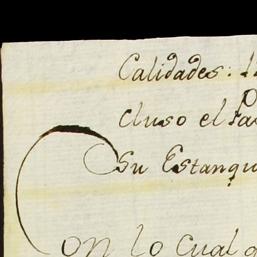 Calidades:
cluso el
Su Estanqu
Con lo cual